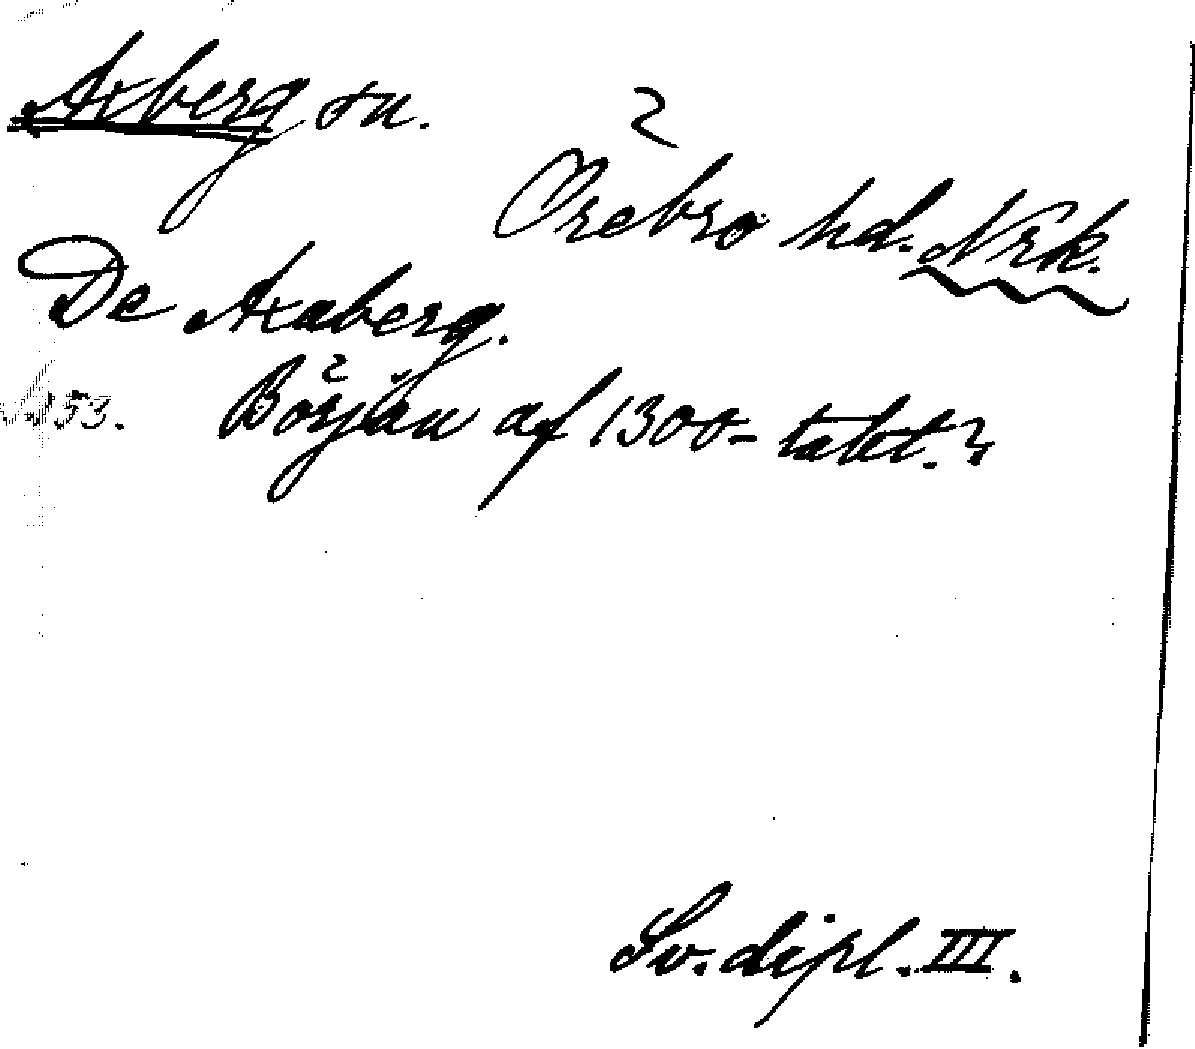 Axberg sn.
Örebro hd. Nrk.
De Axaberg.
53. Början af 1300-talet.
Sv. dipl. III.